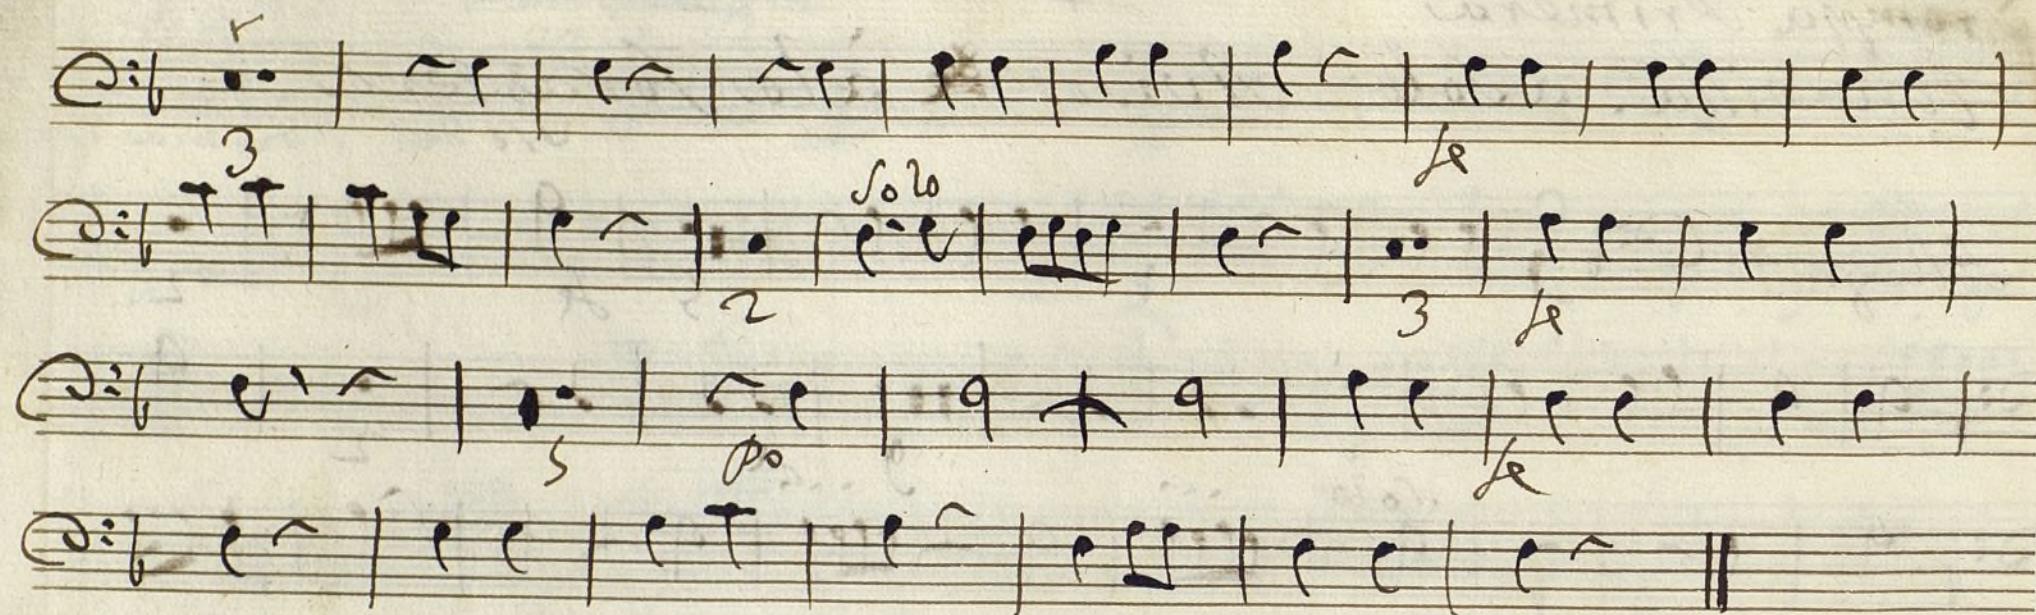 3 fe
Solo
2 3 fe
5 po fe